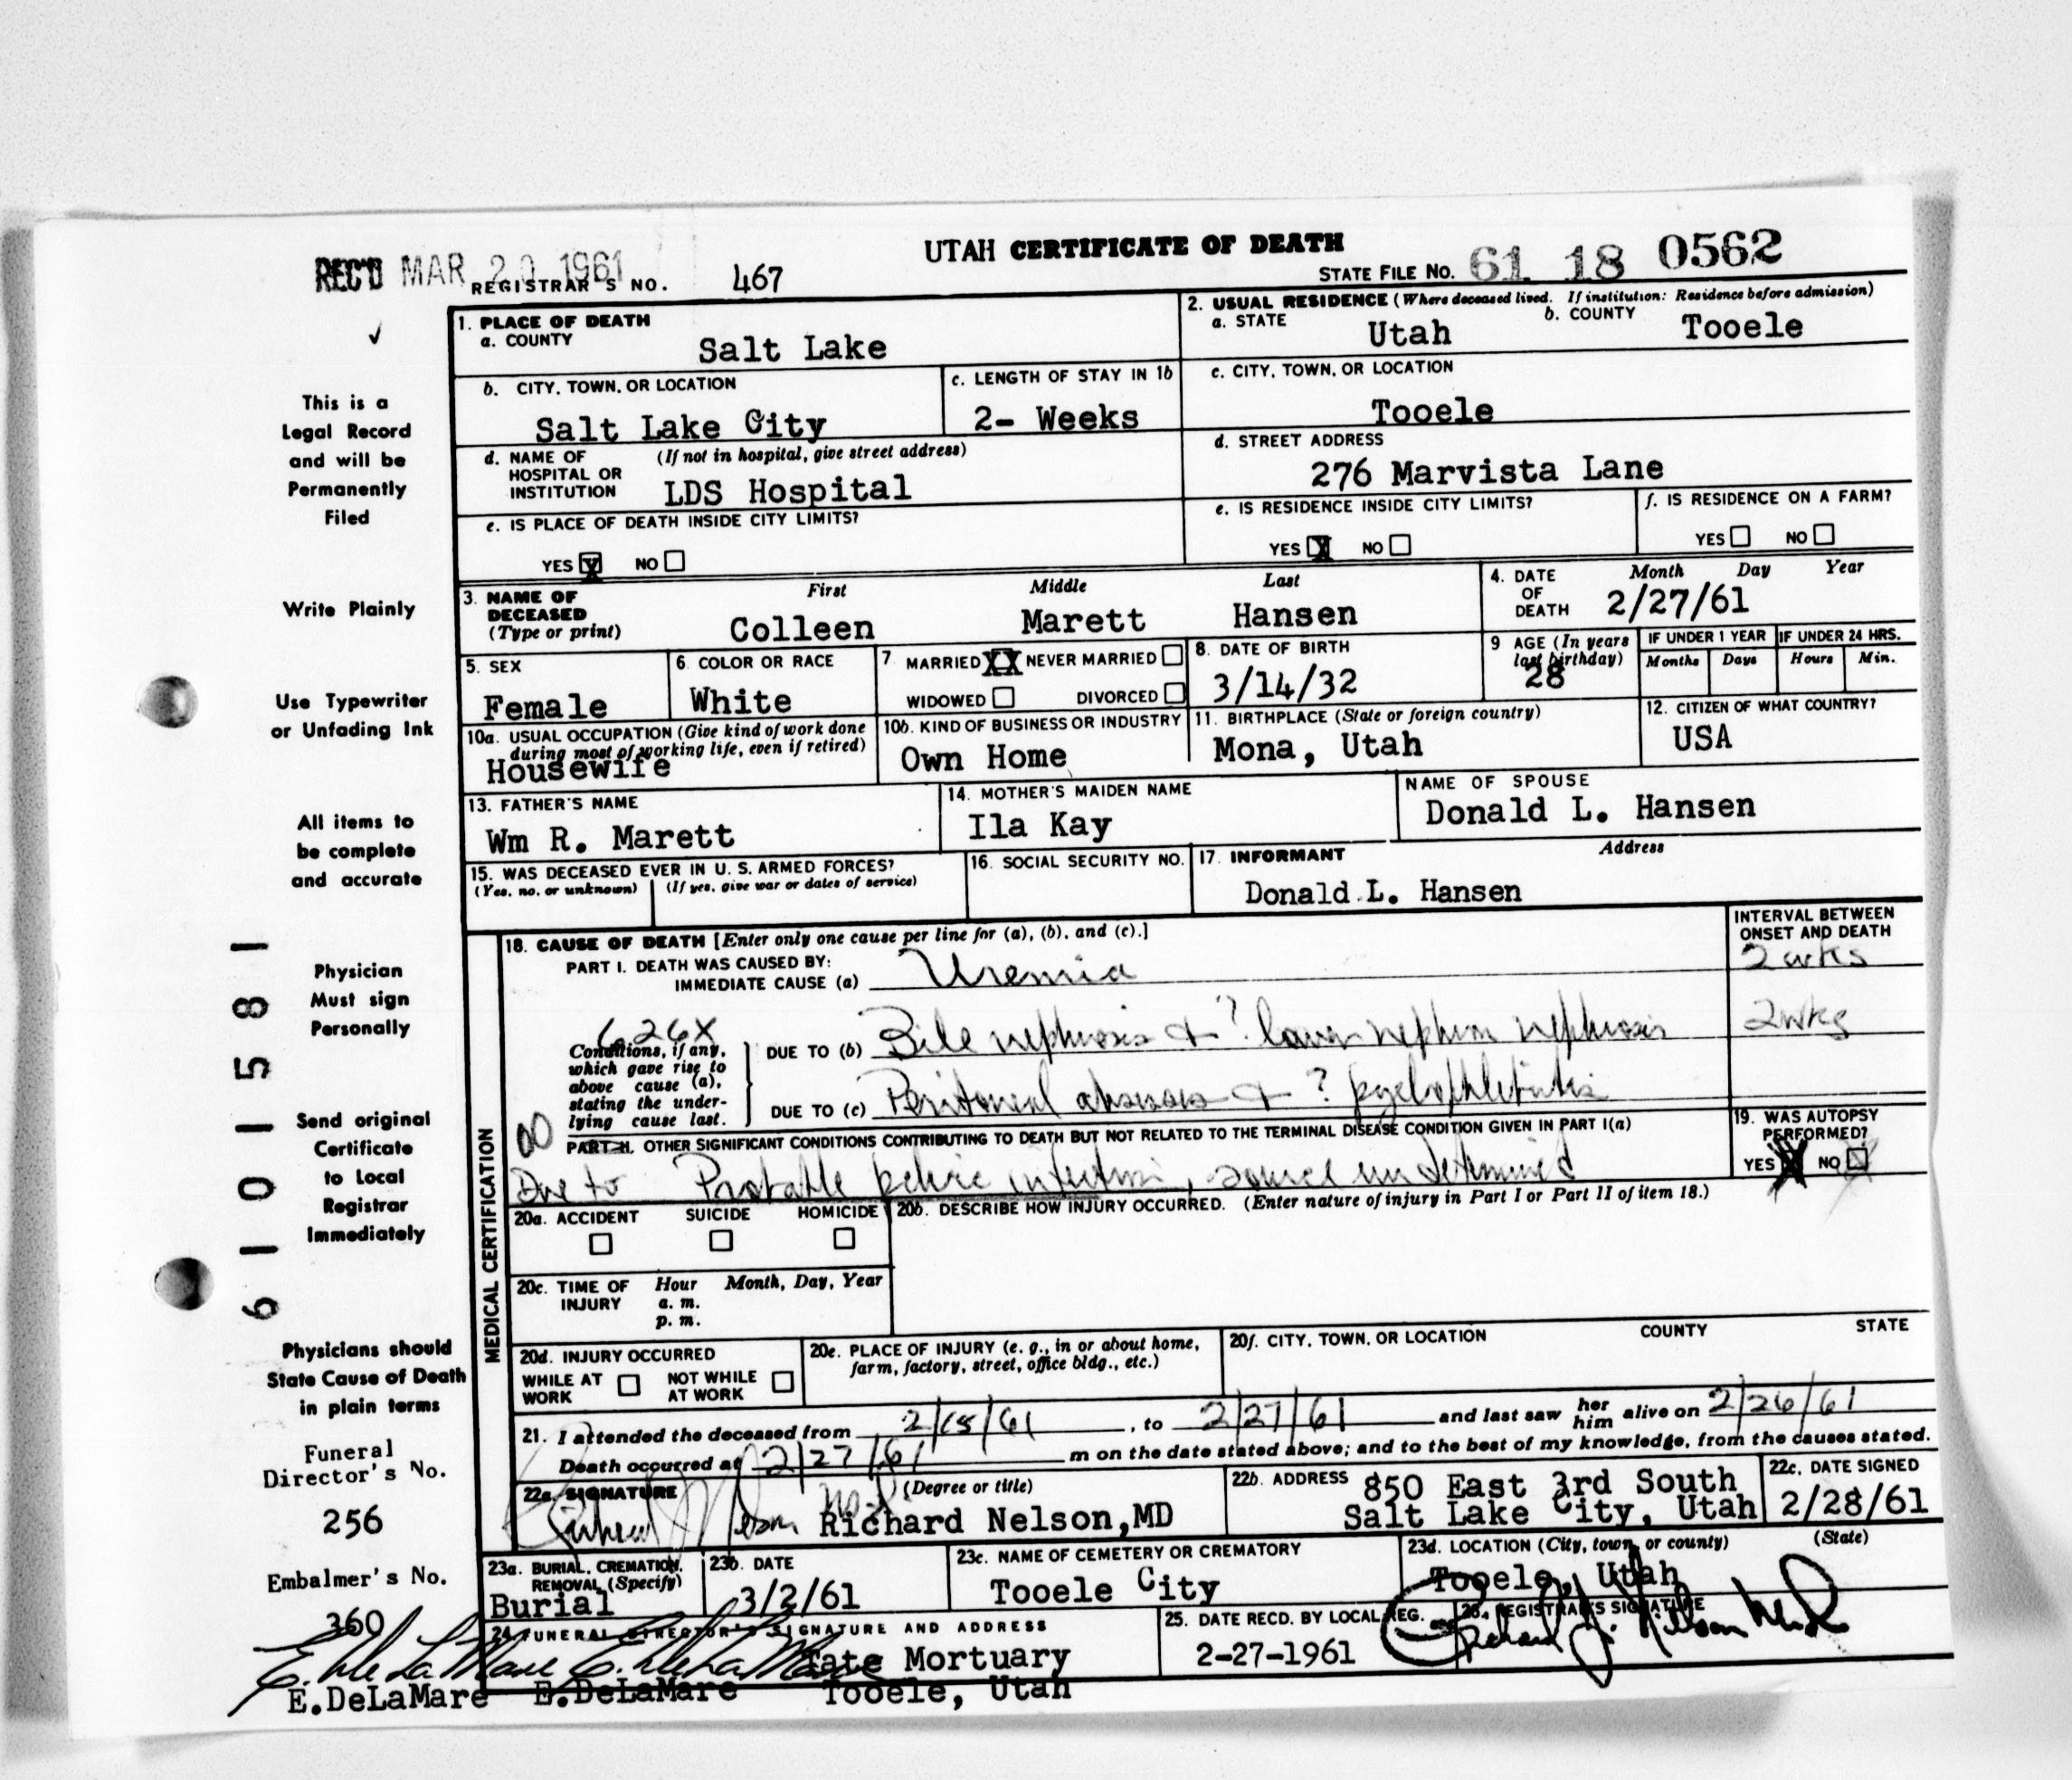 UTAH CERTIFICATE OF DEATH
REC'D MAR 20 1961 REGISTRAR'S NO. 467 STATE FILE No. 61 18 0562
1. PLACE OF DEATH
a. COUNTY Salt Lake
2. USUAL RESIDENCE (Where deceased lived. If institution: Residence before admission)
a. STATE Utah b. COUNTY Tooele
b. CITY, TOWN, OR LOCATION Salt Lake City
c. LENGTH OF STAY IN 1b 2- Weeks
c. CITY, TOWN, OR LOCATION Tooele
d. NAME OF HOSPITAL OR INSTITUTION (If not in hospital, give street address) LDS Hospital
d. STREET ADDRESS 276 Marvista Lane
e. IS PLACE OF DEATH INSIDE CITY LIMITS? YES X NO
e. IS RESIDENCE INSIDE CITY LIMITS? YES X NO
f. IS RESIDENCE ON A FARM? YES NO
3. NAME OF DECEASED (Type or print) First Middle Last
Colleen Marett Hansen
4. DATE OF DEATH Month Day Year 2/27/61
5. SEX Female
6. COLOR OR RACE White
7. MARRIED XX NEVER MARRIED WIDOWED DIVORCED
8. DATE OF BIRTH 3/14/32
9 AGE (In years last birthday) 28
IF UNDER 1 YEAR Months Days
IF UNDER 24 HRS. Hours Min.
10a. USUAL OCCUPATION (Give kind of work done during most of working life, even if retired) Housewife
10b. KIND OF BUSINESS OR INDUSTRY Own Home
11. BIRTHPLACE (State or foreign country) Mona, Utah
12. CITIZEN OF WHAT COUNTRY? USA
13. FATHER'S NAME Wm R. Marett
14. MOTHER'S MAIDEN NAME Ila Kay
NAME OF SPOUSE Donald L. Hansen
15. WAS DECEASED EVER IN U. S. ARMED FORCES?
(Yes, no, or unknown) (If yes, give war or dates of service)
16. SOCIAL SECURITY NO.
17. INFORMANT Address
Donald L. Hansen
MEDICAL CERTIFICATION
18. CAUSE OF DEATH [Enter only one cause per line for (a), (b), and (c).]
INTERVAL BETWEEN ONSET AND DEATH
PART I. DEATH WAS CAUSED BY:
IMMEDIATE CAUSE (a) Uremia 2 wks
626X
Conditions, if any, which gave rise to above cause (a), stating the underlying cause last.
DUE TO (b) Bile nephrosis + ? lower nephron nephrosis 2 wks
DUE TO (c) Peritoneal abscesses + ? pyelophlebitis
00
PART II. OTHER SIGNIFICANT CONDITIONS CONTRIBUTING TO DEATH BUT NOT RELATED TO THE TERMINAL DISEASE CONDITION GIVEN IN PART I(a)
Due to Probable pelvic infection, source undetermined
19. WAS AUTOPSY PERFORMED? YES NO
20a. ACCIDENT SUICIDE HOMICIDE
20b. DESCRIBE HOW INJURY OCCURRED. (Enter nature of injury in Part I or Part II of item 18.)
20c. TIME OF INJURY Hour Month, Day, Year
a. m.
p. m.
20d. INJURY OCCURRED
WHILE AT WORK NOT WHILE AT WORK
20e. PLACE OF INJURY (e. g., in or about home, farm, factory, street, office bldg., etc.)
20f. CITY, TOWN, OR LOCATION COUNTY STATE
21. I attended the deceased from 2/18/61, to 2/27/61 and last saw her him alive on 2/26/61
Death occurred at 2/27/61 m on the date stated above; and to the best of my knowledge, from the causes stated.
22a. SIGNATURE (Degree or title)
Richard Nelson M.D. Richard Nelson,MD
22b. ADDRESS 850 East 3rd South
Salt Lake City, Utah
22c. DATE SIGNED 2/28/61
23a. BURIAL, CREMATION, REMOVAL (Specify) Burial
23b. DATE 3/2/61
23c. NAME OF CEMETERY OR CREMATORY Tooele City
23d. LOCATION (City, town, or county) (State)
Tooele, Utah
24. FUNERAL DIRECTOR'S SIGNATURE AND ADDRESS
E. DeLaMare E. DeLaMare Tate Mortuary
E.DeLaMare E.DeLaMare Tooele, Utah
25. DATE RECD. BY LOCAL REG. 2-27-1961
26. REGISTRAR'S SIGNATURE
This is a
Legal Record
and will be
Permanently
Filed
Write Plainly
Use Typewriter
or Unfading Ink
All items to
be complete
and accurate
Physician
Must sign
Personally
Send original
Certificate
to Local
Registrar
Immediately
Physicians should
State Cause of Death
in plain terms
Funeral
Director's No.
256
Embalmer's No.
360
6101581